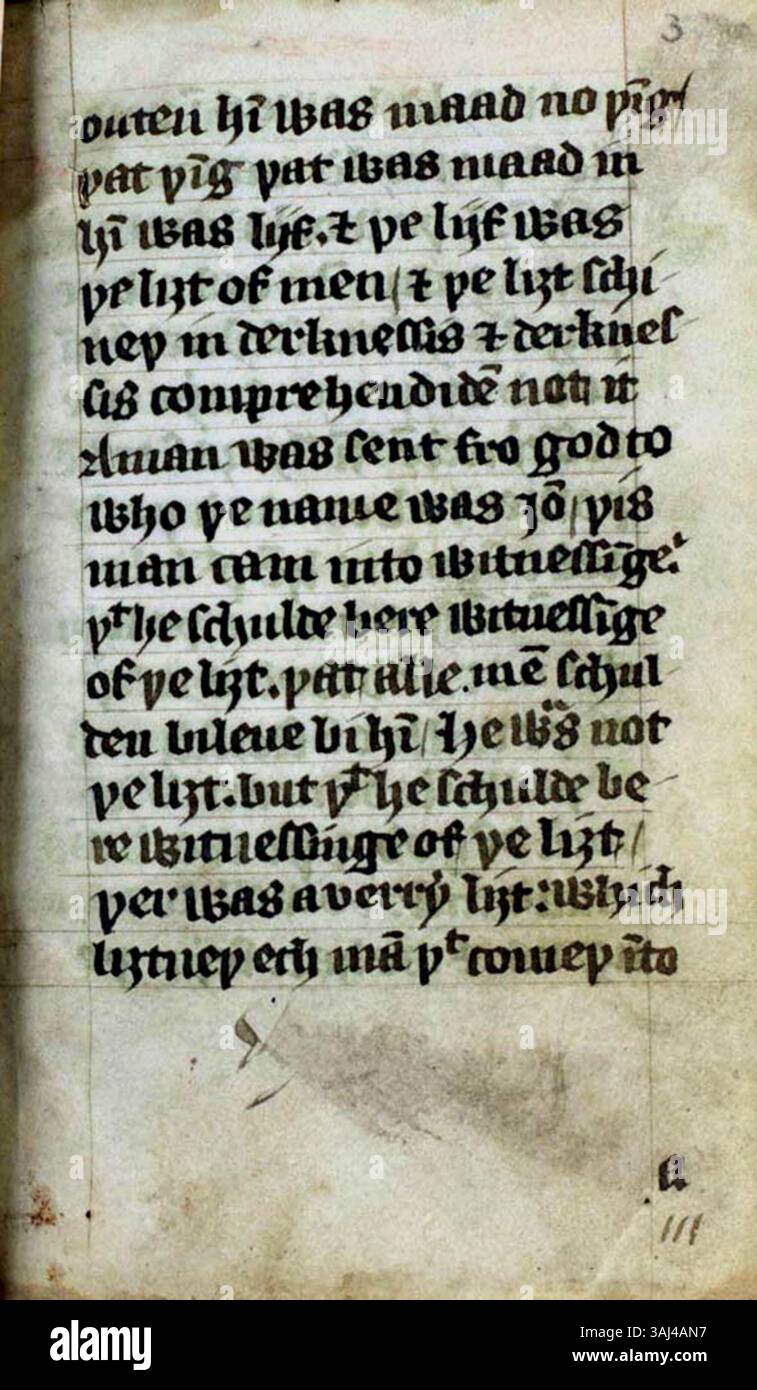 3
outen hī was maad no þīg/
þat þīg þat was maad in
hī was lijf. ⁊ þe lijf was
þe liȝt of men/ ⁊ þe liȝt schi-
neþ in derknessis ⁊ derknes-
sis comprehendidē not it
A man was sent fro god to
who þe name was Jō/ þis
man cam into witnessīge.
þᵗ he schulde bere witnessīge
of þe liȝt. þat alle mē schul
den bileue bi hī/ he was not
þe liȝt. but þᵗ he schulde be-
re witnessinge of þe liȝt/
þer was a verrẏ liȝt: which
liȝtneþ ech mā þᵗ comeþ īto
III
alamy
Image ID: 3AJ4AN7
www.alamy.com